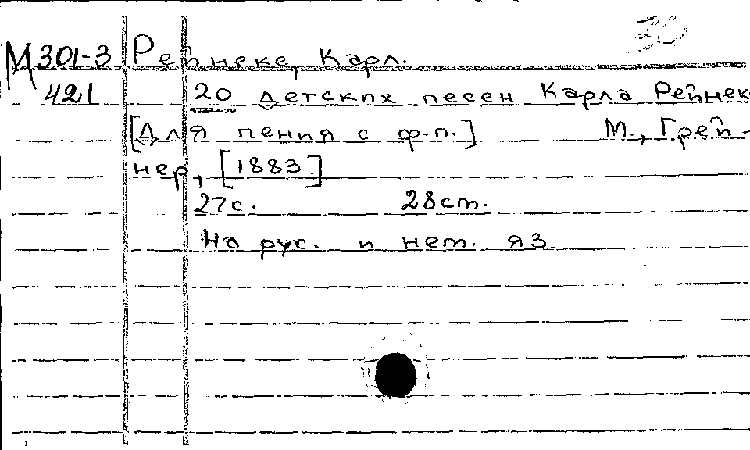 30
М 301-3 Рейнеке, Карл.
421 20 детских песен Карла Рейнек
[Для пения с ф-п.] М., Грей-
нер, [1883]
27с. 28ст.
На рус. и нем. яз